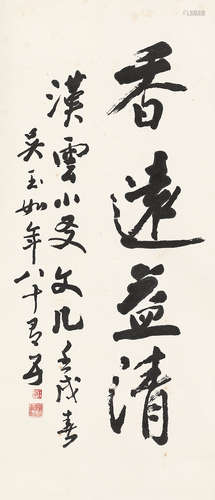 香遠益清
漢雲小友文几壬戌春
吳玉如年八十有五